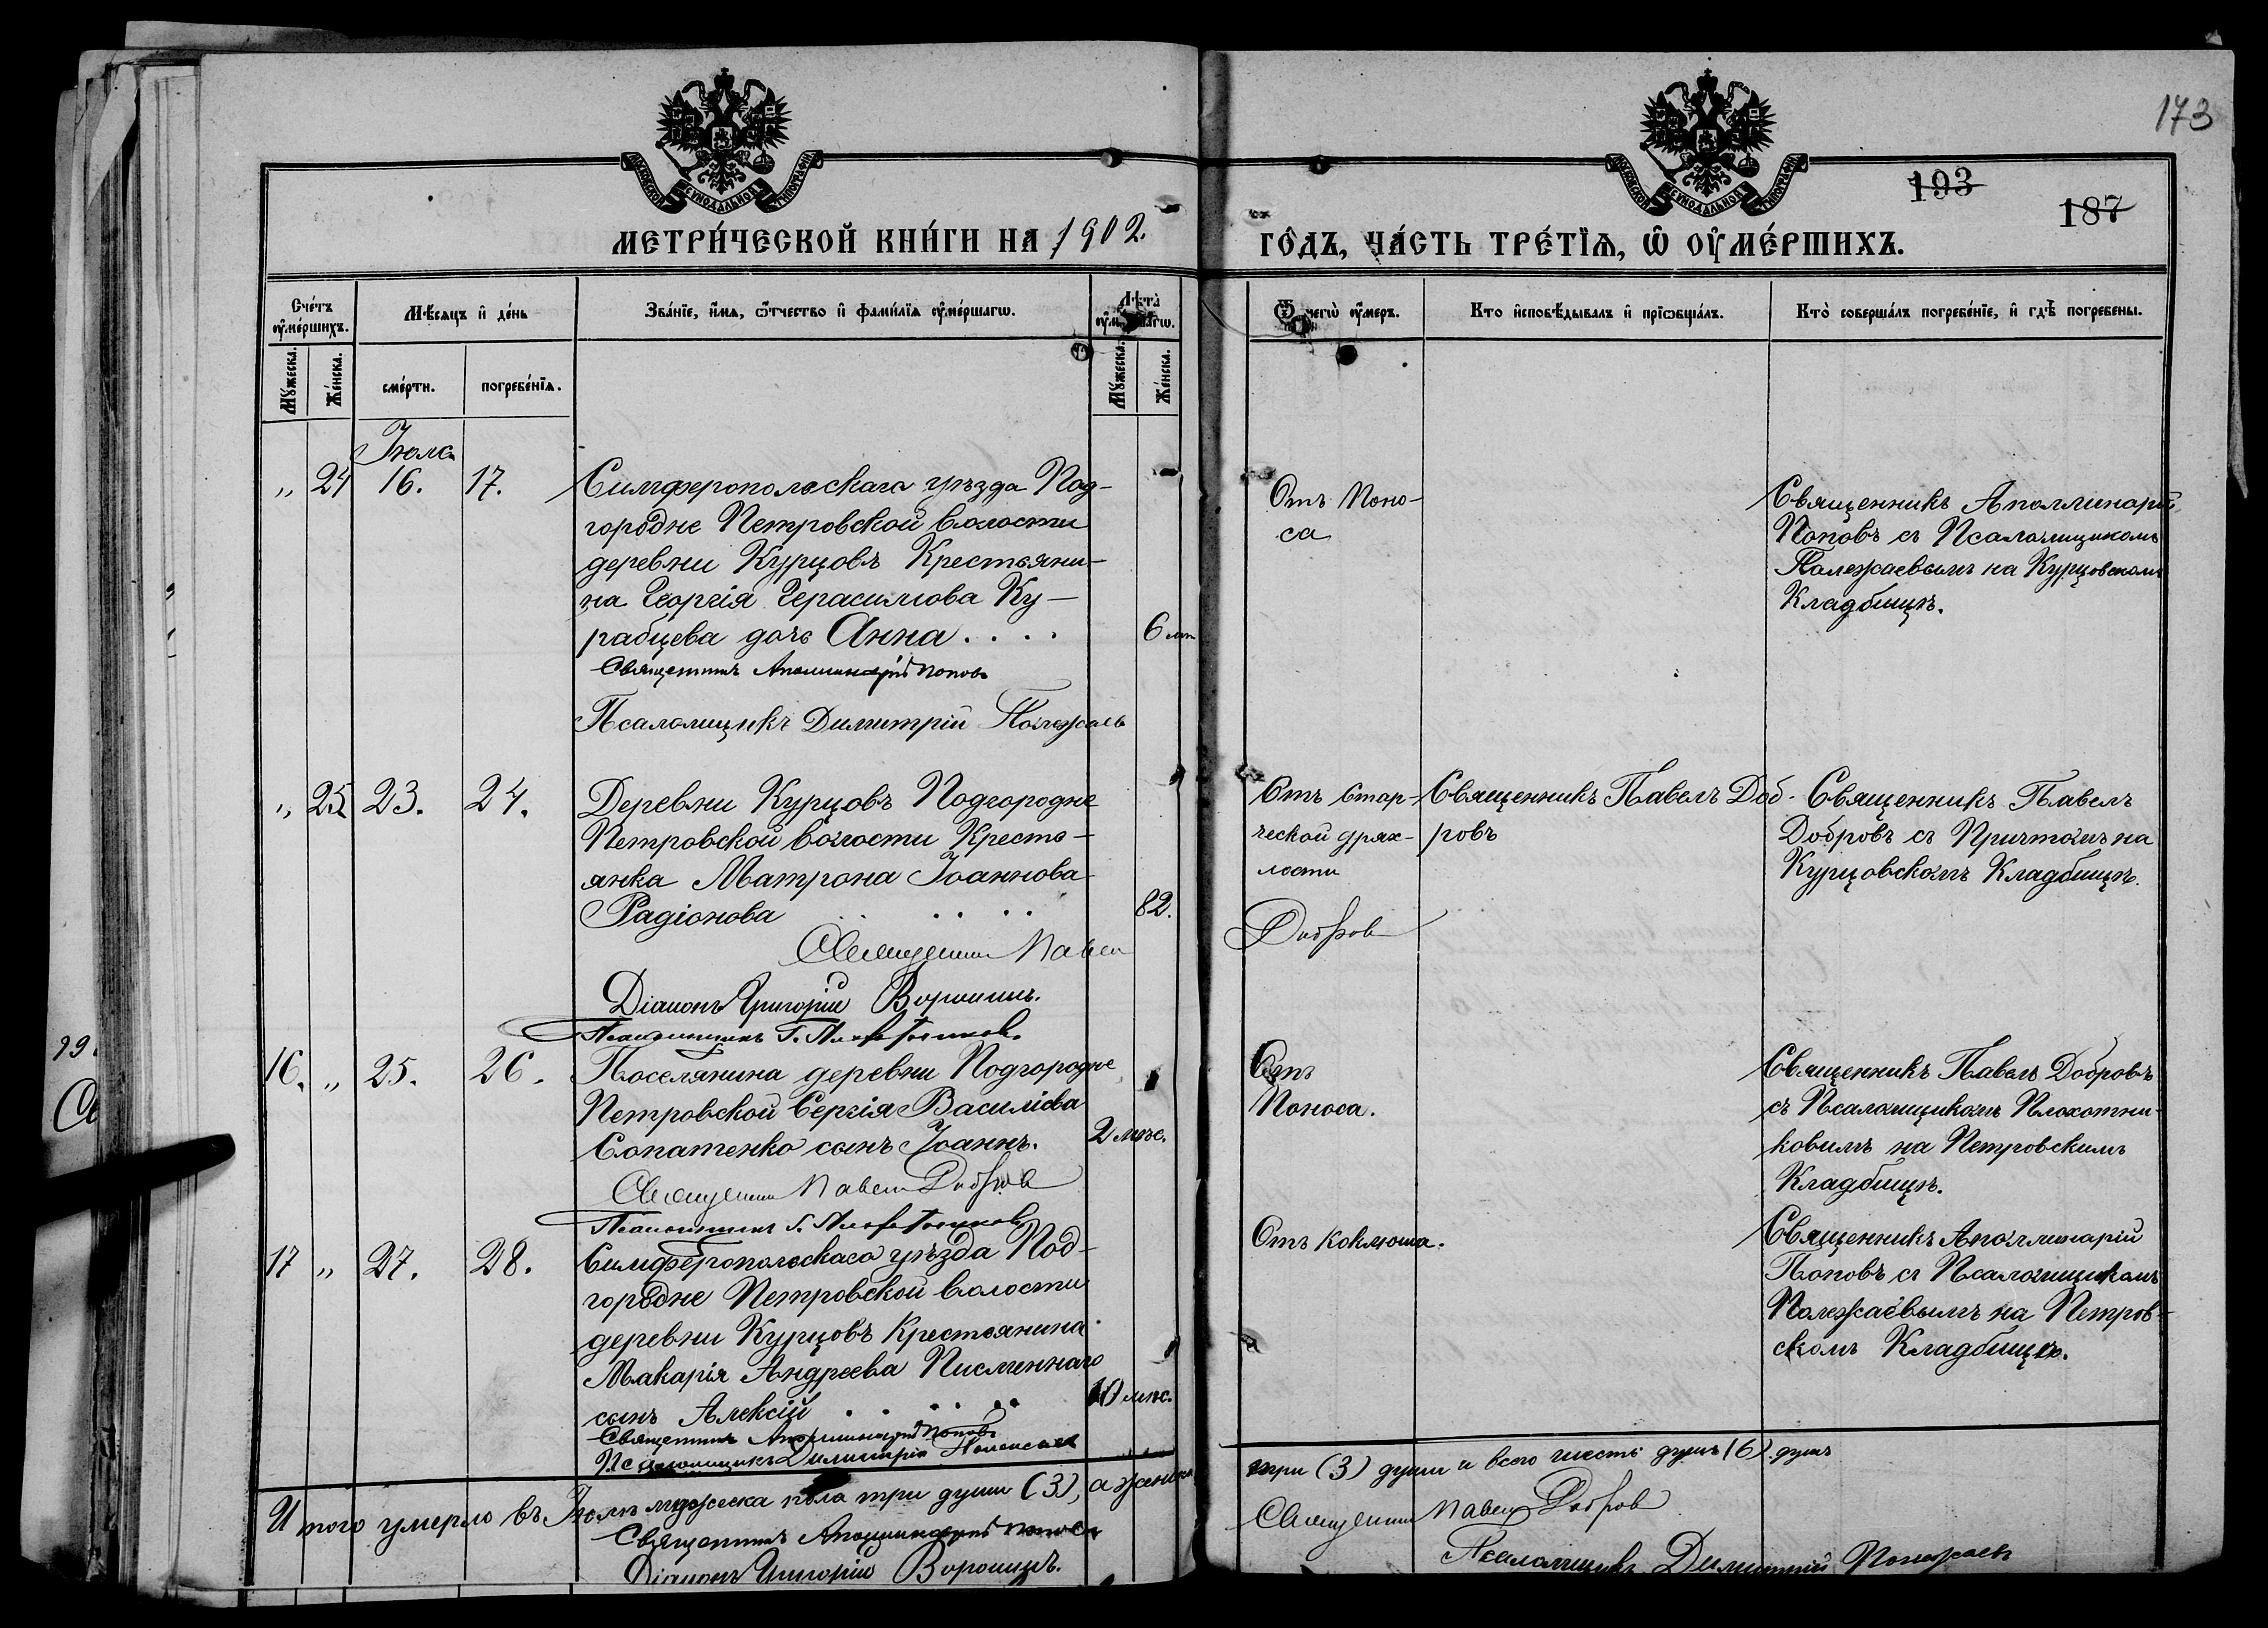 173
193
187
МОСКОВСКОЙ СѴНОДАЛЬНОЙ ТИПОГРАФІИ
МЕТРИ́ЧЕСКОЙ КНИ́ГИ НА 1902.
Сче́тъ ᲂу҆ме́ршихъ.
Мѣ́сяцъ и҆ де́нь
Зва́нїе, и҆́мѧ, ѻ҆́тчество и҆ фами́лїѧ ᲂу҆ме́ршагѡ.
Лѣ́та
Мꙋ́жеска.
Же́нска.
сме́рти.
погребе́нїѧ.
Мꙋ́жеска.
Же́нска.
Іюля
„ 24 16. 17. Симферопольскаго уѣзда Под-
городне Петровской волости
деревни Курцовъ Крестьяни-
на Георгія Герасимова Ку-
рабцева дочь Анна . . . . 6 лѣт
Священникъ Аполлинарій Поповъ
Псаломщикъ Димитрій Полежаевъ
„ 25 23. 24. Деревни Курцовъ Подгородне
Петровской волости Кресть-
янка Матрона Іоаннова
Радіонова . . . . 82.
Священникъ Павелъ
Діаконъ Григорій Воронинъ.
Псаломщикъ Г. Плохотниковъ.
16. „ 25. 26. Поселянина деревни Подгородне
Петровской Сергія Василіева
Сопатенко сынъ Іоаннъ. 2 мѣс.
Священникъ Павелъ Добровъ
Псаломщикъ Г. Плохотниковъ
17 „ 27. 28. Симферопольскаго уѣзда Под-
городне Петровской волости
деревни Курцовъ Крестьянина
Макарія Андреева Писменнаго
сынъ Алексій . . . . . 10 мѣс.
Священникъ Аполлинарій Поповъ
Псаломщикъ Димитрій Полежаевъ
Итого умерло въ Іюлѣ мужеска пола три души (3), а женска
Священникъ Аполлинарій Поповъ
Діаконъ Григорій Воронинъ.
МОСКОВСКОЙ СѴНОДАЛЬНОЙ ТИПОГРАФІИ
ГО́ДЪ, ЧА́СТЬ ТРЕ́ТЇѦ, Ѡ҆ ОУ҆МЕ́РШИХЪ.
Ѿ чегѡ̀ ᲂу҆́меръ.
Кто̀ и҆сповѣ́дывалъ и҆ прїѡбща́лъ.
Кто̀ соверша́лъ погребе́нїе, и҆ гдѣ̀ погребены̀.
Отъ Поно-
са
Священникъ Аполлинарій
Поповъ съ Псаломщикомъ
Полежаевымъ на Курцовскомъ
Кладбищѣ.
Отъ Стар-
ческой дрях-
лости
Священникъ Павелъ Доб-
ровъ
Священникъ Павелъ
Добровъ съ Причтомъ на
Курцовскомъ Кладбищѣ.
Добровъ
Отъ
Поноса.
Священникъ Павелъ Добровъ
съ Псаломщикомъ Плохотни-
ковимъ на Петровскимъ
Кладбищѣ.
Отъ Коклюша.
Священникъ Аполлинарій
Поповъ съ Псаломщикомъ
Полежаевымъ на Петров-
скомъ Кладбищѣ.
три (3) души и всего шесть душъ (6) душъ
Священникъ Павелъ Добровъ
Псаломщикъ Димитрій Полежаевъ